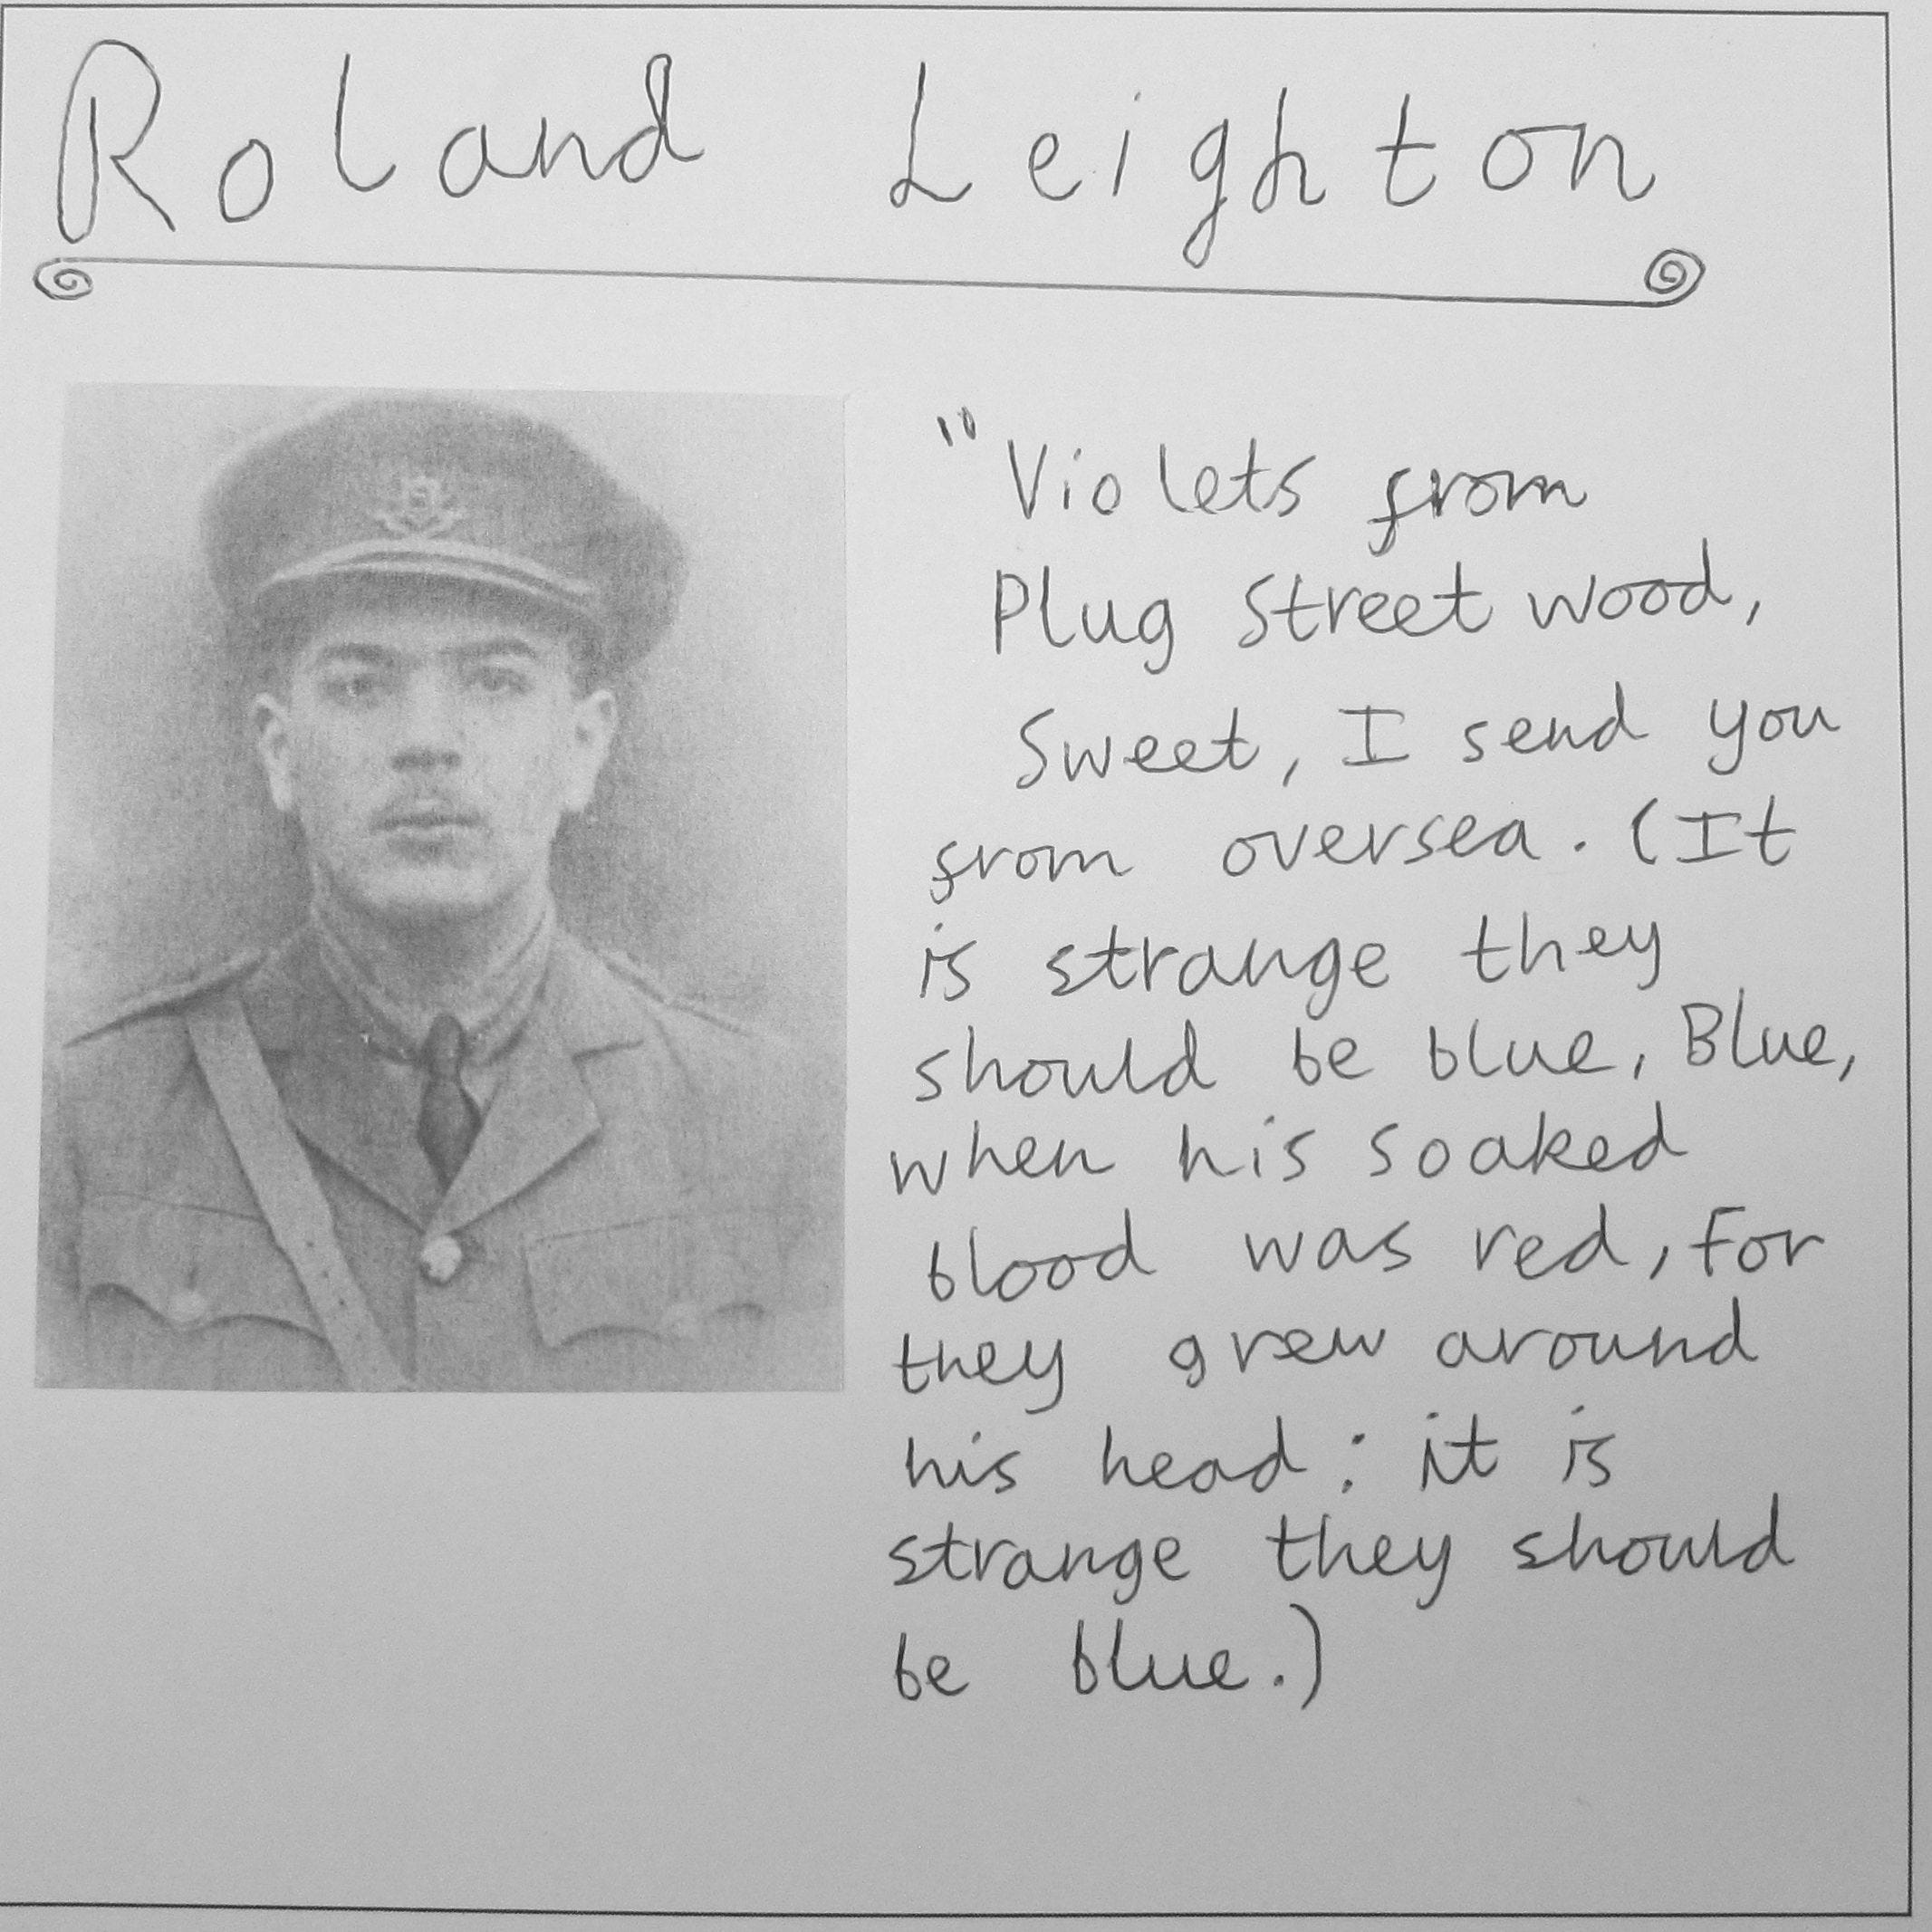 Roland Leighton
"Violets from
Plug Street Wood,
Sweet, I send you
from oversea. (It
is strange they
should be blue, Blue,
when his soaked
blood was red, For
they grew around
his head: it is
strange they should
be blue.)